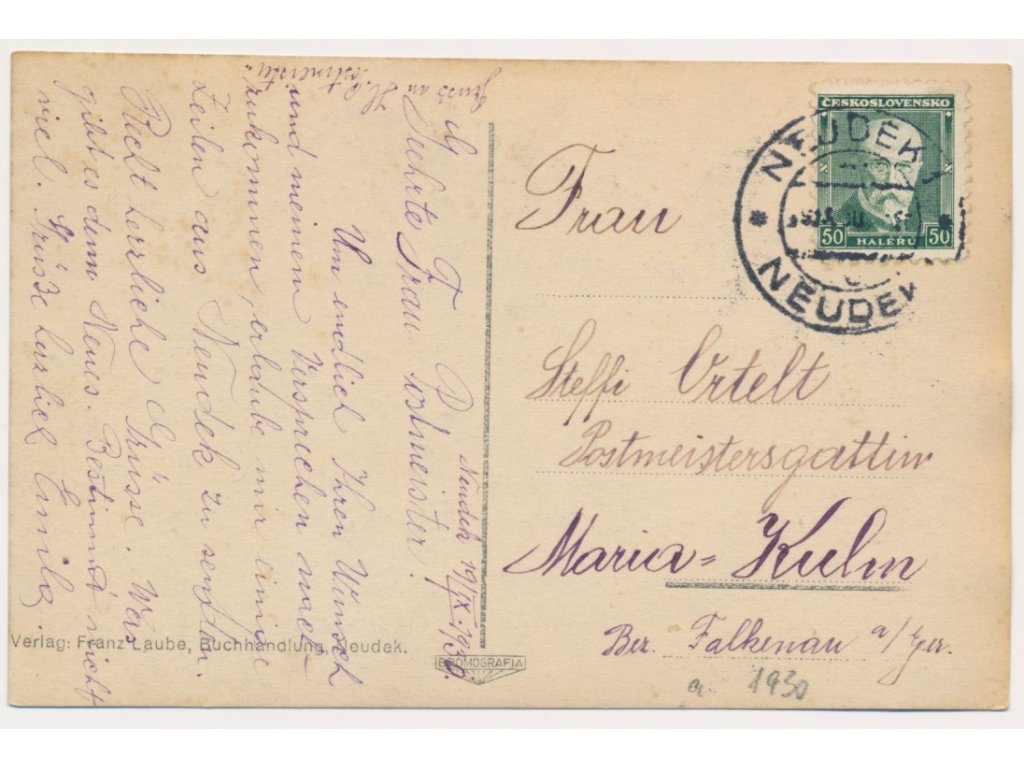 Neudek 19/IX. 1930.
Geehrte Frau Postmeister!
Um endlich Ihren Wunsch
und meinem Versprechen nach-
zukommen, erlaube mir einige
Zeilen aus Neudek zu senden.
Recht herzliche Grüsse. Was
gibt es denn Neues. Bestimmt nicht
viel. Grüsse herzlich Emila.
Gruss an H.
Postmeister
Verlag: Franz Laube, Buchhandlung, Neudek.
BROMOGRAFIA
ČESKOSLOVENSKO
50 HALÉŘŮ 50
NEUDEK
NEUDEK
Frau
Steffi Ortelt
Postmeistersgattin
Maria=Kulm
Bez. Falkenau a/Eger.
1930